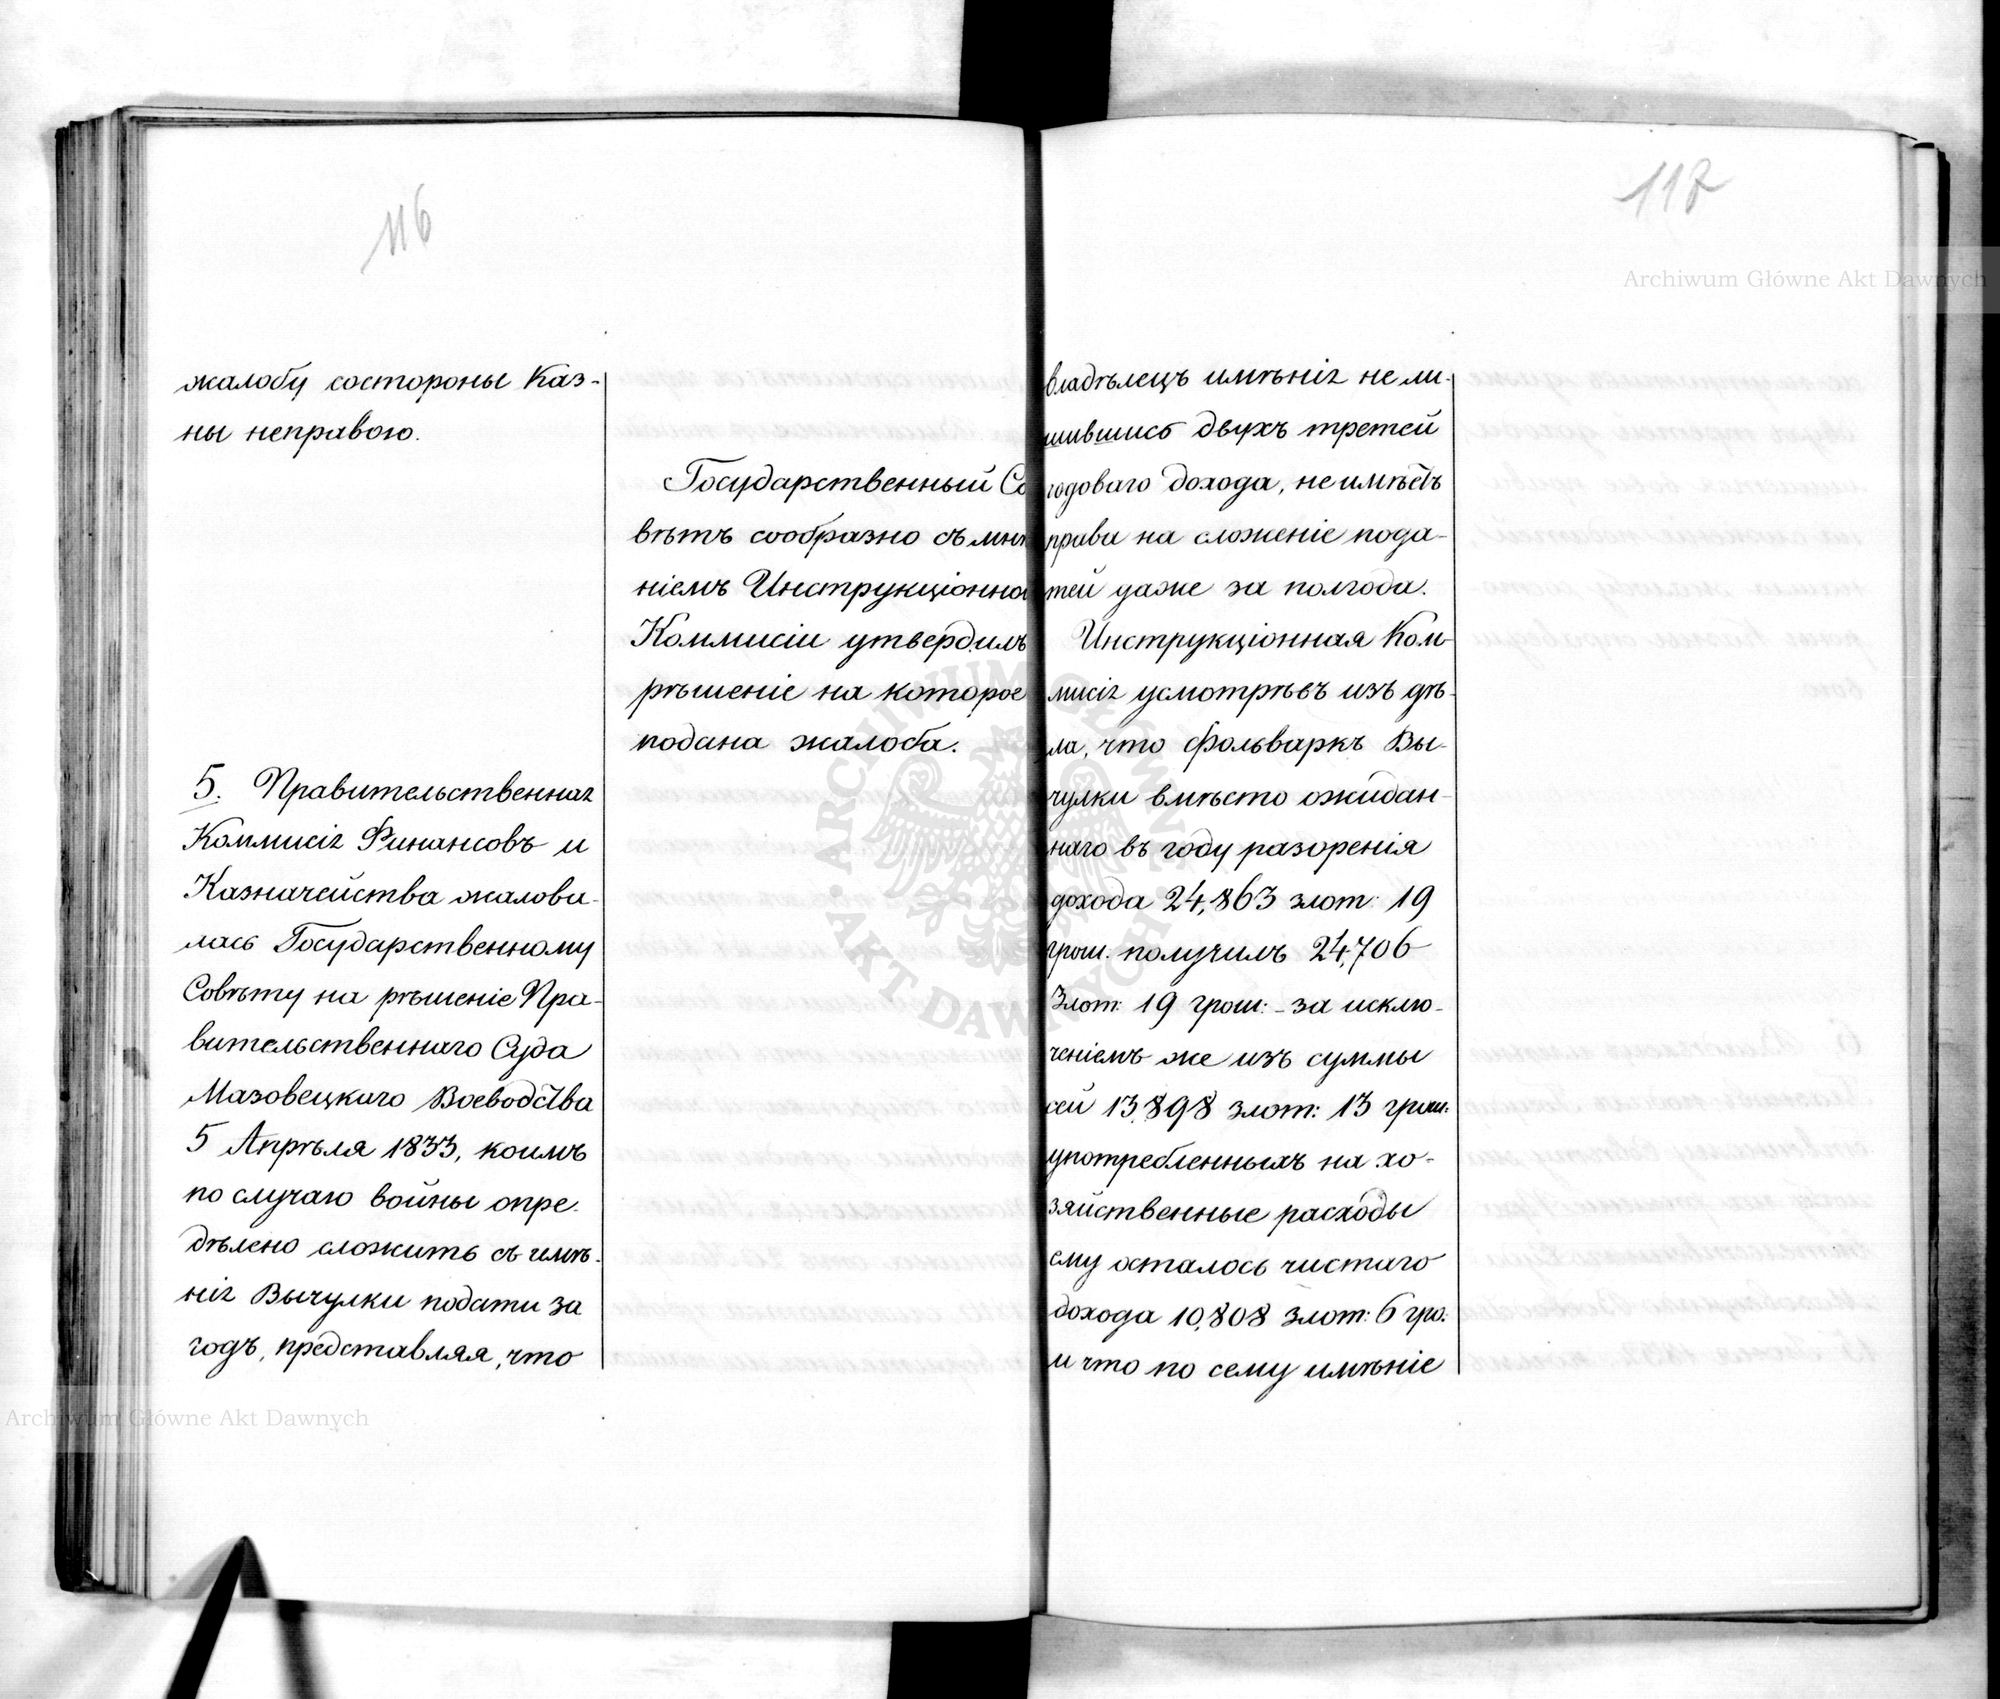 116
жалобу состороны Каз-
ны неправою.
Государственный Со
вѣтъ сообразно съ мнѣ
ніемъ Инструкціонной
Коммисіи утвердилъ
рѣшеніе на которое
подана жалоба.
5. Правительственная
Коммисія Финансовъ и
Казначейства жалова-
лась Государственному
Совѣту на рѣшеніе Пра-
вительственнаго Суда
Мазовецкаго Воеводства
5 Апрѣля 1833, коимъ
по случаю войны опре-
дѣлено сложить съ имѣ-
нія Вычулки подати за
годъ, представляя, что
117
владѣлецъ имѣнія не ли-
шившись двухъ третей
годоваго дохода, не имѣетъ
права на сложеніе пода-
тей даже за полгода.
Инструкціонная Ком-
мисія усмотрѣвъ изъ дѣ-
ла, что фольваркъ Вы-
чулки вмѣсто ожидан-
наго въ году разоренія
дохода 24,863 злот: 19
грош. получилъ 24,706
Злот: 19 грош: - за исклю-
ченіемъ же изъ суммы
сей 13,898 злот: 13 грош:
употребленныхъ на хо-
зяйственные расходы
ему осталось чистаго
дохода 10,808 Злот: 6 гро:
и что по сему имѣніе
Archiwum Główne Akt Dawnych
ARCHIWUM GŁÓWNE AKT DAWNYCH
Archiwum Główne Akt Dawnych